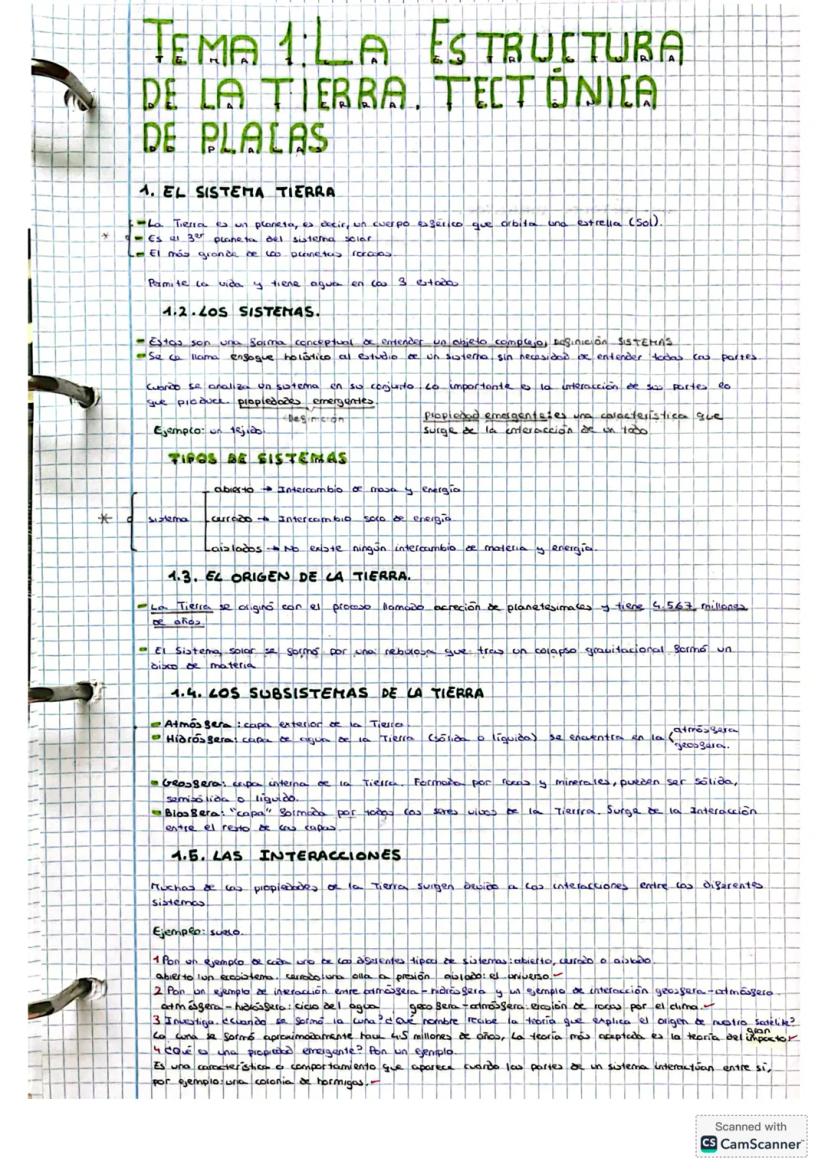 TEMA 1: LA ESTRUCTURA
DE LA TIERRA. TECTÓNICA
DE PLACAS
1. EL SISTEMA TIERRA
- La Tierra es un planeta, es decir, un cuerpo esférico que orbita una estrella (Sol).
* - Es el 3er planeta del sistema solar
- El más grande de los planetas rocosos.
Permite la vida y tiene agua en los 3 estados
1.2. LOS SISTEMAS.
- Estos son una forma conceptual de entender un objeto complejo, Definición SISTEMAS
- Se la llama enfoque holístico al estudio de un sistema sin necesidad de entender todas las partes.
Cuando se analiza un sistema en su conjunto lo importante es la interacción de sus partes lo
que produce propiedades emergentes
Definición
Propiedad emergente: es una característica que
Ejemplo: un tejido.
surge de la interacción de un todo
TIPOS DE SISTEMAS
abierto → Intercambio de masa y energía
* sistema cerrado → Intercambio solo de energía
aislados → No existe ningún intercambio de materia y energía.
1.3. EL ORIGEN DE LA TIERRA.
- La Tierra se originó con el proceso llamado acreción de planetesimales y tiene 4.567 millones
de años
- El Sistema solar se formó por una nebulosa que tras un colapso gravitacional formó un
disco de materia
1.4. LOS SUBSISTEMAS DE LA TIERRA
- Atmósfera: capa exterior de la Tierra.
- Hidrósfera: capa de agua de la Tierra (sólida o líquida) se encuentra en la (atmósfera
geosfera.
- Geosfera: capa interna de la Tierra. Formada por rocas y minerales, pueden ser sólida,
semisólida o líquido.
- Biosfera: "capa" formada por todos los seres vivos de la Tierrra. Surge de la Interacción
entre el resto de las capas
1.5. LAS INTERACCIONES
Muchas de las propiedades de la Tierra surgen devido a las interacciones entre los diferentes
sistemas
Ejemplo: suelo.
1 Pon un ejemplo de cada uno de los diferentes tipos de sistemas: abierto, cerrado o aislado.
abierto: un ecosistema. cerrado: una olla a presión aislado: el universo.
2 Pon un ejemplo de interacción entre atmósfera - hidrósfera y un ejemplo de interacción geosfera - atmósfera
atmósfera - hidrósfera: ciclo del agua geosfera - atmósfera: erosión de rocas por el clima.
3 Investiga. ¿Cuándo se formó la luna? ¿Qué nombre recibe la teoría que explica el origen de nuestro satélite?
La luna se formó aproximadamente hace 4.5 millones de años, La teoría más aceptada es la teoría del gran impacto
4 ¿Qué es una propiedad emergente? Pon un ejemplo.
Es una característica o comportamiento que aparece cuando las partes de un sistema interactúan entre sí,
por ejemplo: una colonia de hormigas.
Scanned with
CS CamScanner